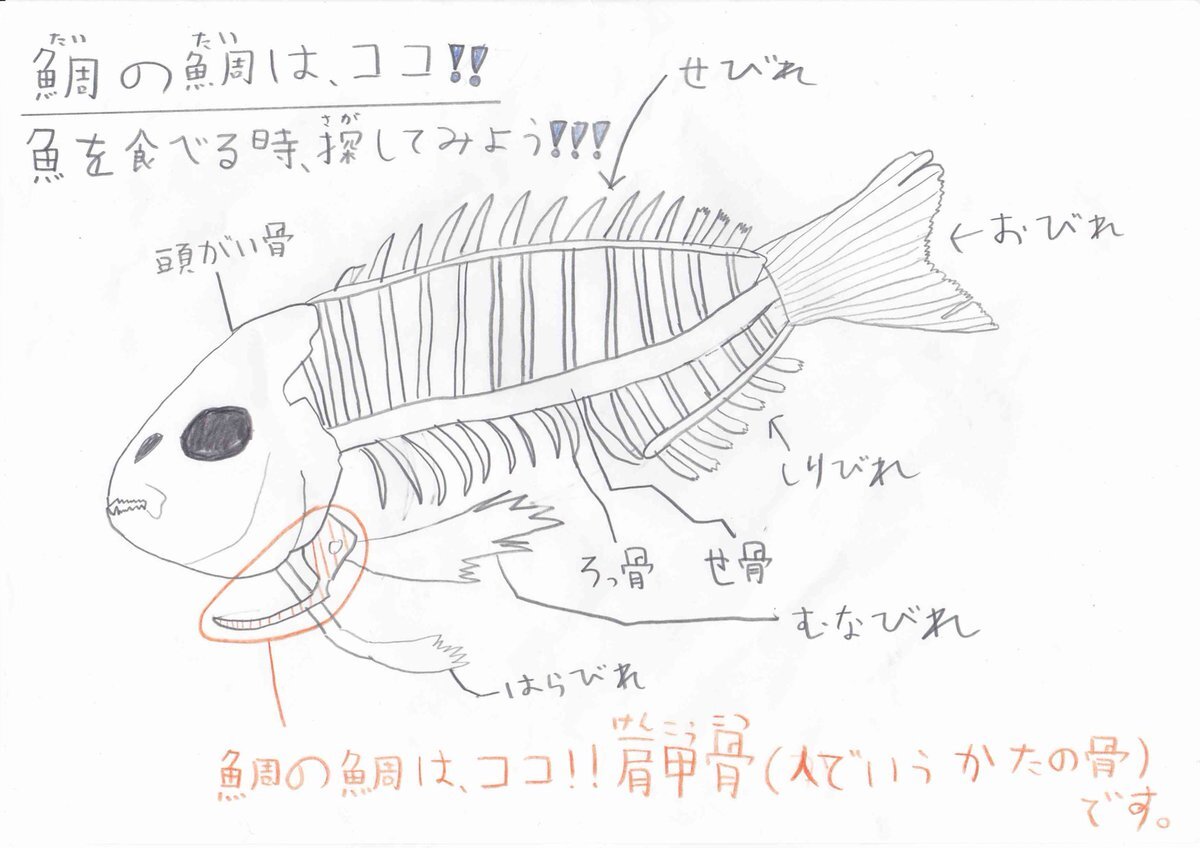 鯛の鯛は、ココ!!
たい たい
魚を食べる時、探してみよう!!!
さが
せびれ
頭がい骨
おびれ
しりびれ
ろっ骨
せ骨
むなびれ
はらびれ
けんこうこつ
鯛の鯛は、ココ!!肩甲骨(人でいうかたの骨)
です。